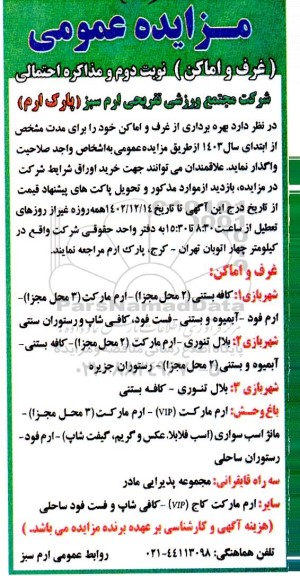 مـزایده عمومی
( غرف و اماکن ) نوبت دوم و مذاکره احتمالی
شرکت مجتمع ورزشی تفریحی ارم سبز (پارک ارم)
در نظر دارد بهره برداری از غرف و اماکن خود را برای مدت مشخص
از ابتدای سال۱۴۰۳ ازطریق مزایده عمومی به اشخاص واجد صلاحیت
واگذار نماید. علاقمندان می توانند جهت خرید اوراق شرایط شرکت
در مزایده، بازدید ازموارد مذکور و تحویل پاکت های پیشنهاد قیمت
از تاریخ درج این آگهی تا تاریخ ۱۴۰۲/۱۲/۱۴همه روزه غیراز روزهای
تعطیل از ساعت۸:۳۰ تا ۱۵:۳۰ به دفتر واحد حقوقی شرکت واقع در
کیلومتر چهار اتوبان تهران - کرج، پارک ارم مراجعه نمایند.
غرف و اماکن:
شهربازی۱: کافه بستنی (۲ محل مجزا) - ارم مارکت (۳ محل مجزا)-
ارم فود - آبمیوه و بستنی - فست فود، کافی شاپ ورستوران سنتی
شهربازی ۲: بلال تنوری - ارم مارکت (۲ محل مجزا)- کافه بستنی-
آبمیوه و بستنی (۲ محل مجزا) - رستوران جزیره
شهربازی ۳: بلال تنـوری - کافـه بستنی
باغ وحـش: ارم مارکـت (VIP) - ارم مارکـت (۳ محـل مجـزا)-
مانژ اسب سواری (اسب فلابلا، عکس و گریم، گیفت شاپ) - ارم فود -
رستوران ساحلی
سه راه قایقرانی: مجموعه پذیرایی مادر
سایر: ارم مارکت کاج (VIP) -کافی شاپ و فست فود ساحلی
(هزینه آگهی و کارشناسی بر عهده برنده مزایده می باشد. )
تلفن هماهنگی: ۴۴۱۱۳۰۹۸-۰۲۱ روابط عمومی ارم سبز
ParsNamadData